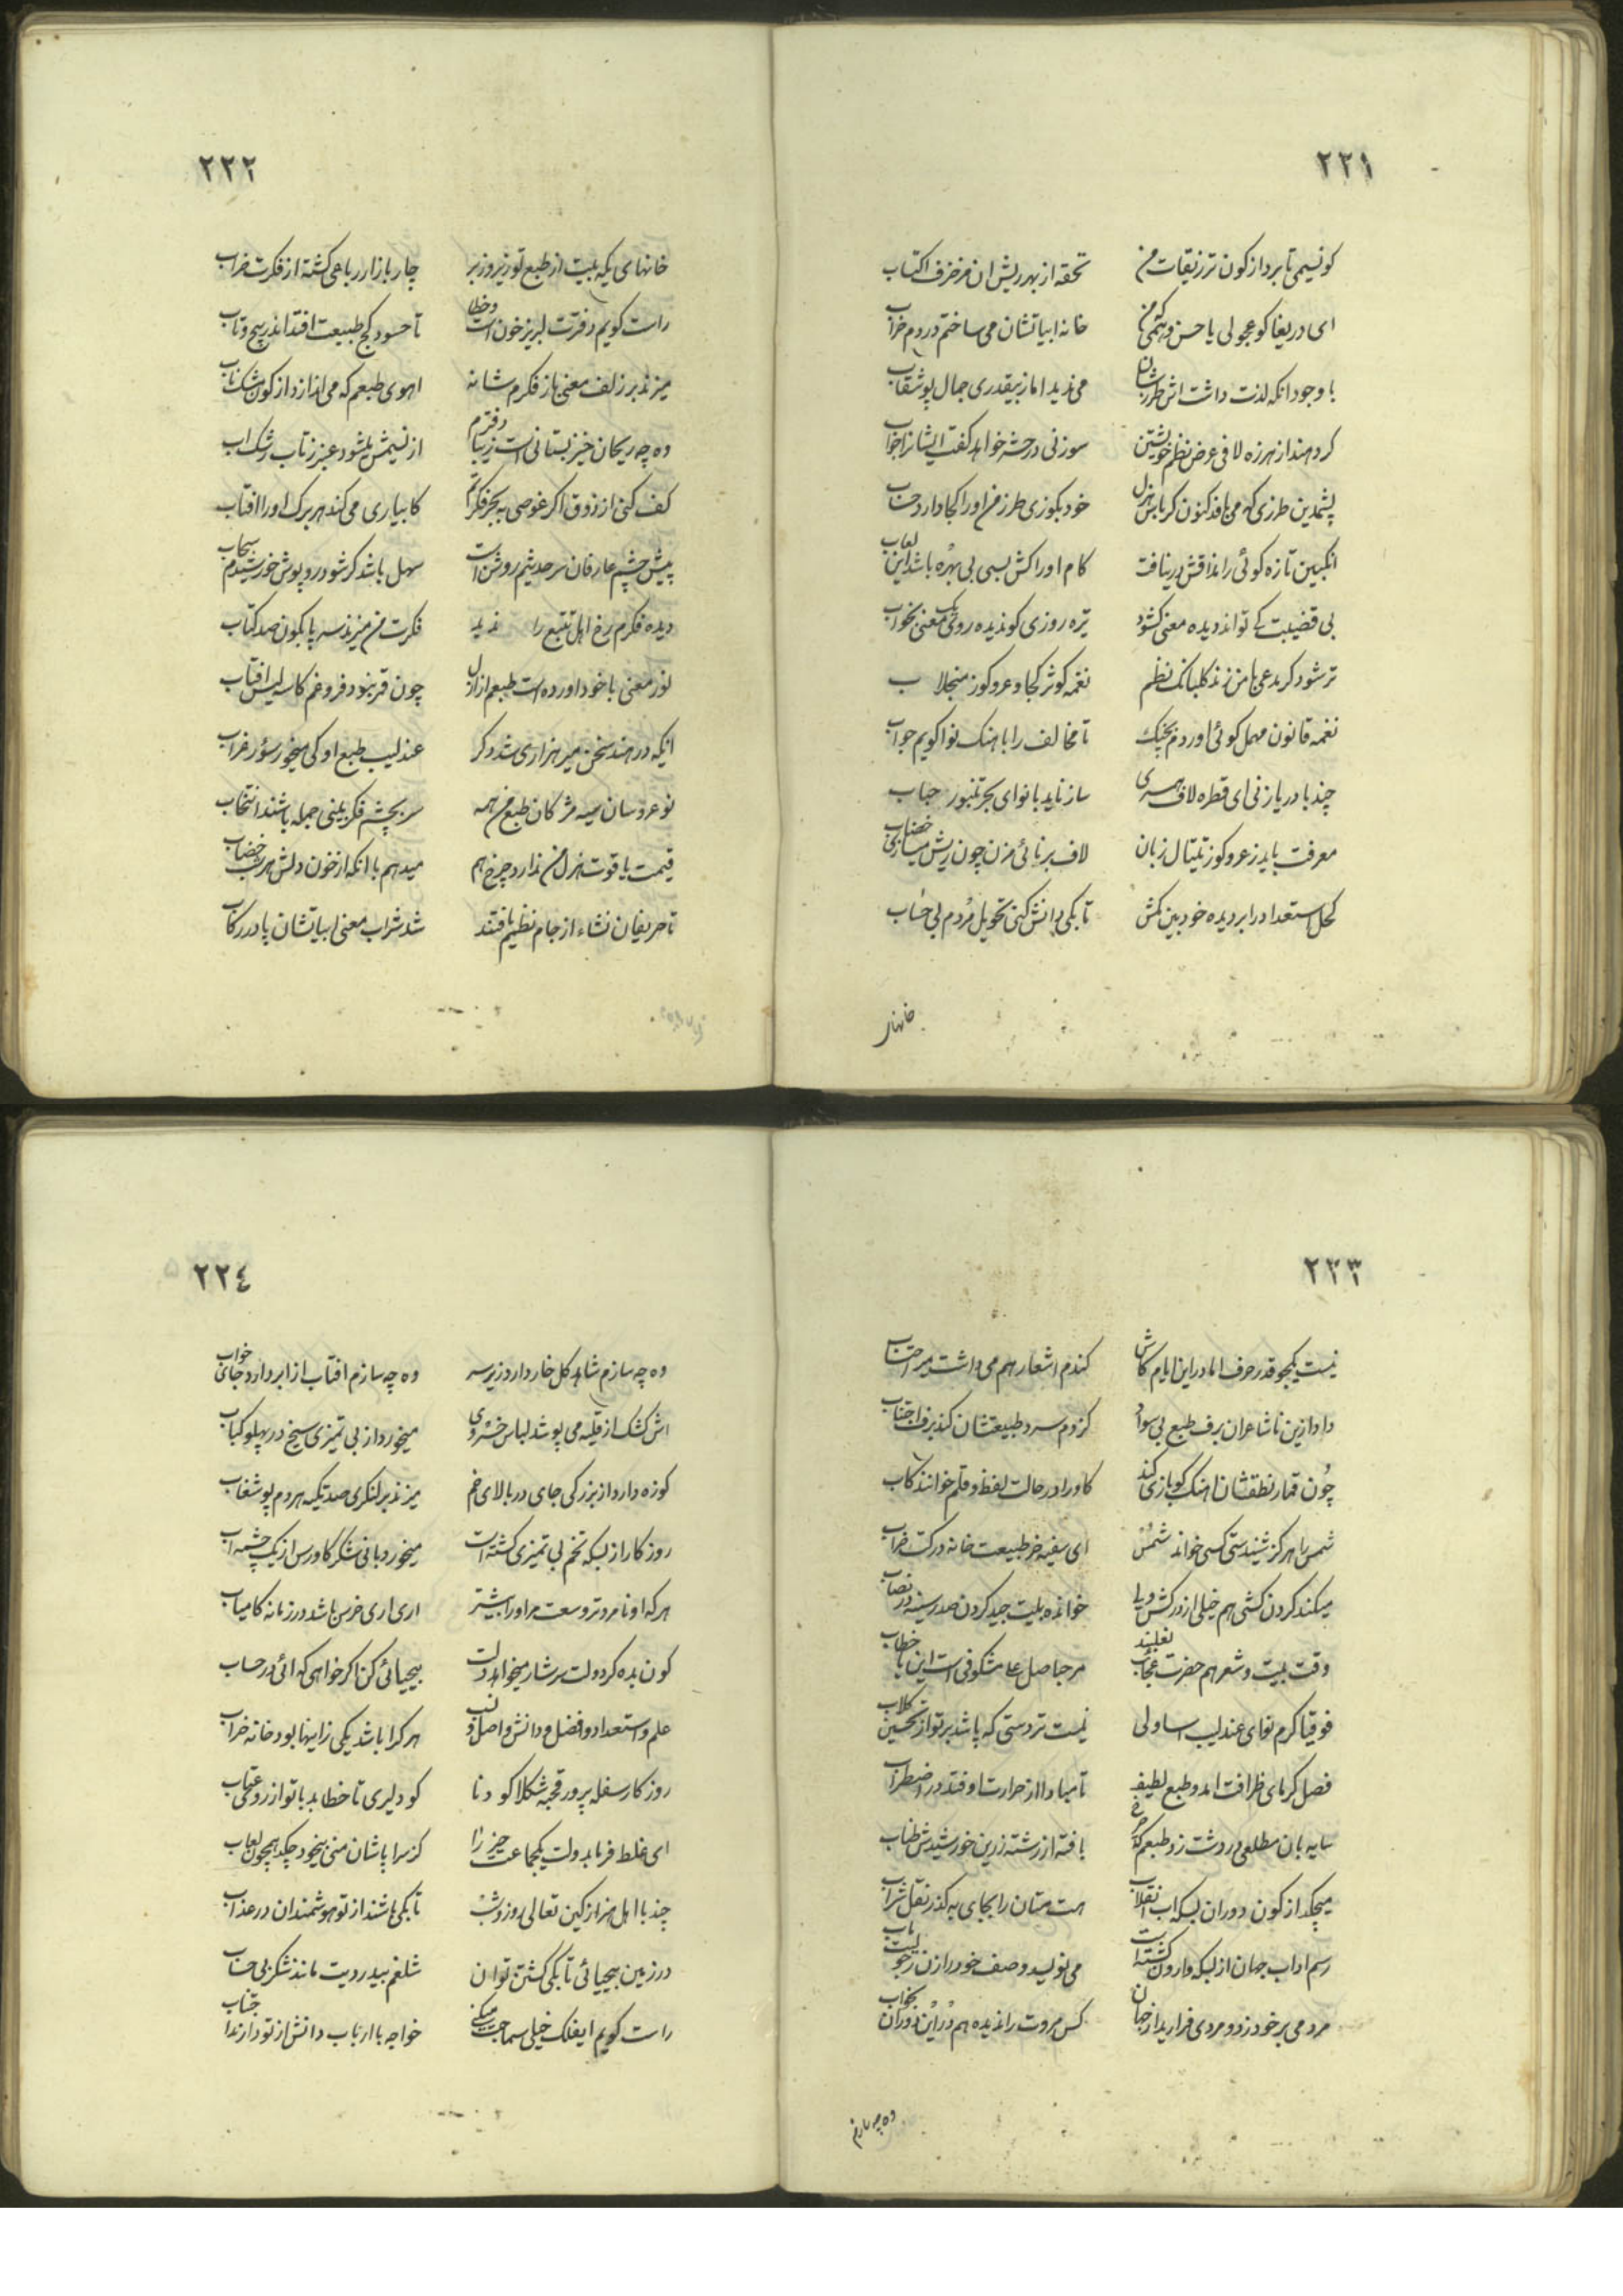 ٢٢١
کو نسیمی تا برد از کون تر زیقات من تحفه از بهر ریش ان مزخرف اکتساب
ای دریغا کو عجولی یا حسن و همتی من خانه ابیاتشان می ساختم در دم خراب
با وجود انکه لذت داشت اش طرزشان می ندید اما ز بیقدری جمال پوشقاب
کرده اند از هرزه لافی عرض نظم خویشتن سوزنی در حشر خواهد کفت ایشانرا جواب
پشمدین طرزی که می بافد کنون کرباس هزل خود بکوزی طرز من او را کجا دارد حساب
انکبین تازه کوئی را مذاقش در نیافت کام او را کش بسی بی بهره باشد این لعاب
بی قضیبت کے تواند دیده معنی کشود تیره روزی کو ندیده روی یک معنی بخواب
تر شود کر مدعی با من زند کلبانک نظم نغمه کوثر کجا و عر و کوز منجلاب
نغمه قانون مهمل کوئی اوردم بچنک تا مخالف را باهنک نوا کویم جواب
چند با دریا زنی ای قطره لاف همسری ساز ناید با نوای بحر تنبور حباب
معرفت باید ز عر و کوز تیتال زبان لاف برنائی مزن چون ریش میسازی خضاب
کحل استعداد را بر دیده خود بین مکش تا بکی دانش کنی تحویل مردم بی حساب
خانهای
٢٢٢
خانهای یکه بیت از طبع تو زیر و زبر چار بازار رباعی کشته از فکرت خراب
راست کویم دفترت لبریز خون است و خطا تا حسود کج طبیعت افتد اندر پیچ و تاب
میزند بر زلف معنی باز فکرم شانه اهوی طبعم که می اندازد از کون مشک ناب
وه چه ریحان خیز بستانی است زیبا دفترم از نسیمش میشود عنبر ز تاب رشک اب
کف کنی از ذوق اکر غوصی به بحر فکرتم کابیاری می کند هر برک او را افتاب
پیش چشم عارفان سر حدیثم روشن است سهل باشد کر شود روپوش خورشیدم سحاب
دیده فکرم رخ اهل تتبع را ندید فکرت من میزند سر پا بکون صد کتاب
نور معنی با خود اورده است طبعم از ازل چون قمر نبود فروغم کاسه لیس افتاب
انکه در هند سخن میر هزاری شد دکر عندلیب طبع او کی میخورد سؤر غراب
نو عروسان سیه مژکان طبع من همه سر بچشم فکر بینی جمله باشند انتخاب
قیمت یاقوت هزل من ندارد چرخ هم میدهم با انکه از خون دلش هر شب خضاب
تا حریفان نشاء از جام نظیم یافتند شد شراب معنی ابیاتشان پا در رکاب
٢٢٣
نیست یکجو قدر حرف اما در این ایام کاش کندم اشعار هم می داشت میر احتساب
داد ازین ناشاعران برف طبع بی سواد کز دم سرد طبیعتشان کند برف اجتناب
چون قمار نطقشان اهنک کو بازی کند کاو را در حالت لفظ و قلم خوانند کاب
شمس را هرکز شنیدستی کسی خواند شمس ای سفیه خر طبیعت خانه درکت خراب
میکند کردن کشی هم خیلی از درکش ویا خوانده بیت جید کردن صد رسیده در نصاب
وقت بیت و شعر هم حضرت عجاب نعلبند مرحبا صل علی مشکوفی است این یا خطاب
فوقیا کرم نوای عندلیب ساولی نیست تردستی که پاشد بر تو از تحسین کلاب
فصل کرمای ظرافت امد و طبع لطیف تا مبادا از حرارت اوفتد در اضطراب
سایه بان مطلعی در دشت زد طبعم که چرخ بافته از رشته زرین خورشیدش طناب
میچکد از کون دوران بسکه اب انقلاب مست مستان را بجای به کذر نقل شراب
رسم اداب جهان از بسکه وارون کشته است می نویسد وصف خود را زن رجولیت ماب
مردمی بر خود زد و مردی فرارید از جهان کس مروت را ندیده هم در این دوران بخواب
وه چه سازم
٢٢٤
وه چه سازم شاهد کل خار دارد زیر سر وه چه سازم افتاب از ابر دارد جای خواب
اش کشک از قلیه می پوشد لباس خسروی میخورد از بی تمیزی سیخ در پهلو کباب
کوزه دارد از بزرکی جای در بالای خم میزند بر لنکری صد تکیه هر دم پوشقاب
روزکار از بسکه تخم بی تمیزی کشته است میخورد با نیشکر کاورس از یک چشمه اب
هر که او نامردتر وسعت مر او را بیشتر اری اری خرس باشد در زمانه کامیاب
کون بده کر دولت سرشار میخواهد دلت بیحیائی کن اکر خواهی که ائی در حساب
علم و استعداد و فضل و دانش و اصل و نسب هر کرا باشد یکی زاینها بود خانه خراب
روزکار سفله پرور قحبه شکلا کودنا کو دلیری تا خطابد با تو از روی عتاب
ای غلط فرما بدولت یکجماعت حیز را کز سراپاشان منی بیخود چکد همچون لعاب
چند با اهل هنر از کین تعالی روز و شب تا بکی باشند از تو هوشمندان در عذاب
در زمین بیحیائی تا بکی کشتن توان شلغم بیدردیت ماند شکر بی حساب
راست کویم ایفلک خیلی سماجت میکنی خواجه با ارباب دانش از تو دارند اجتناب